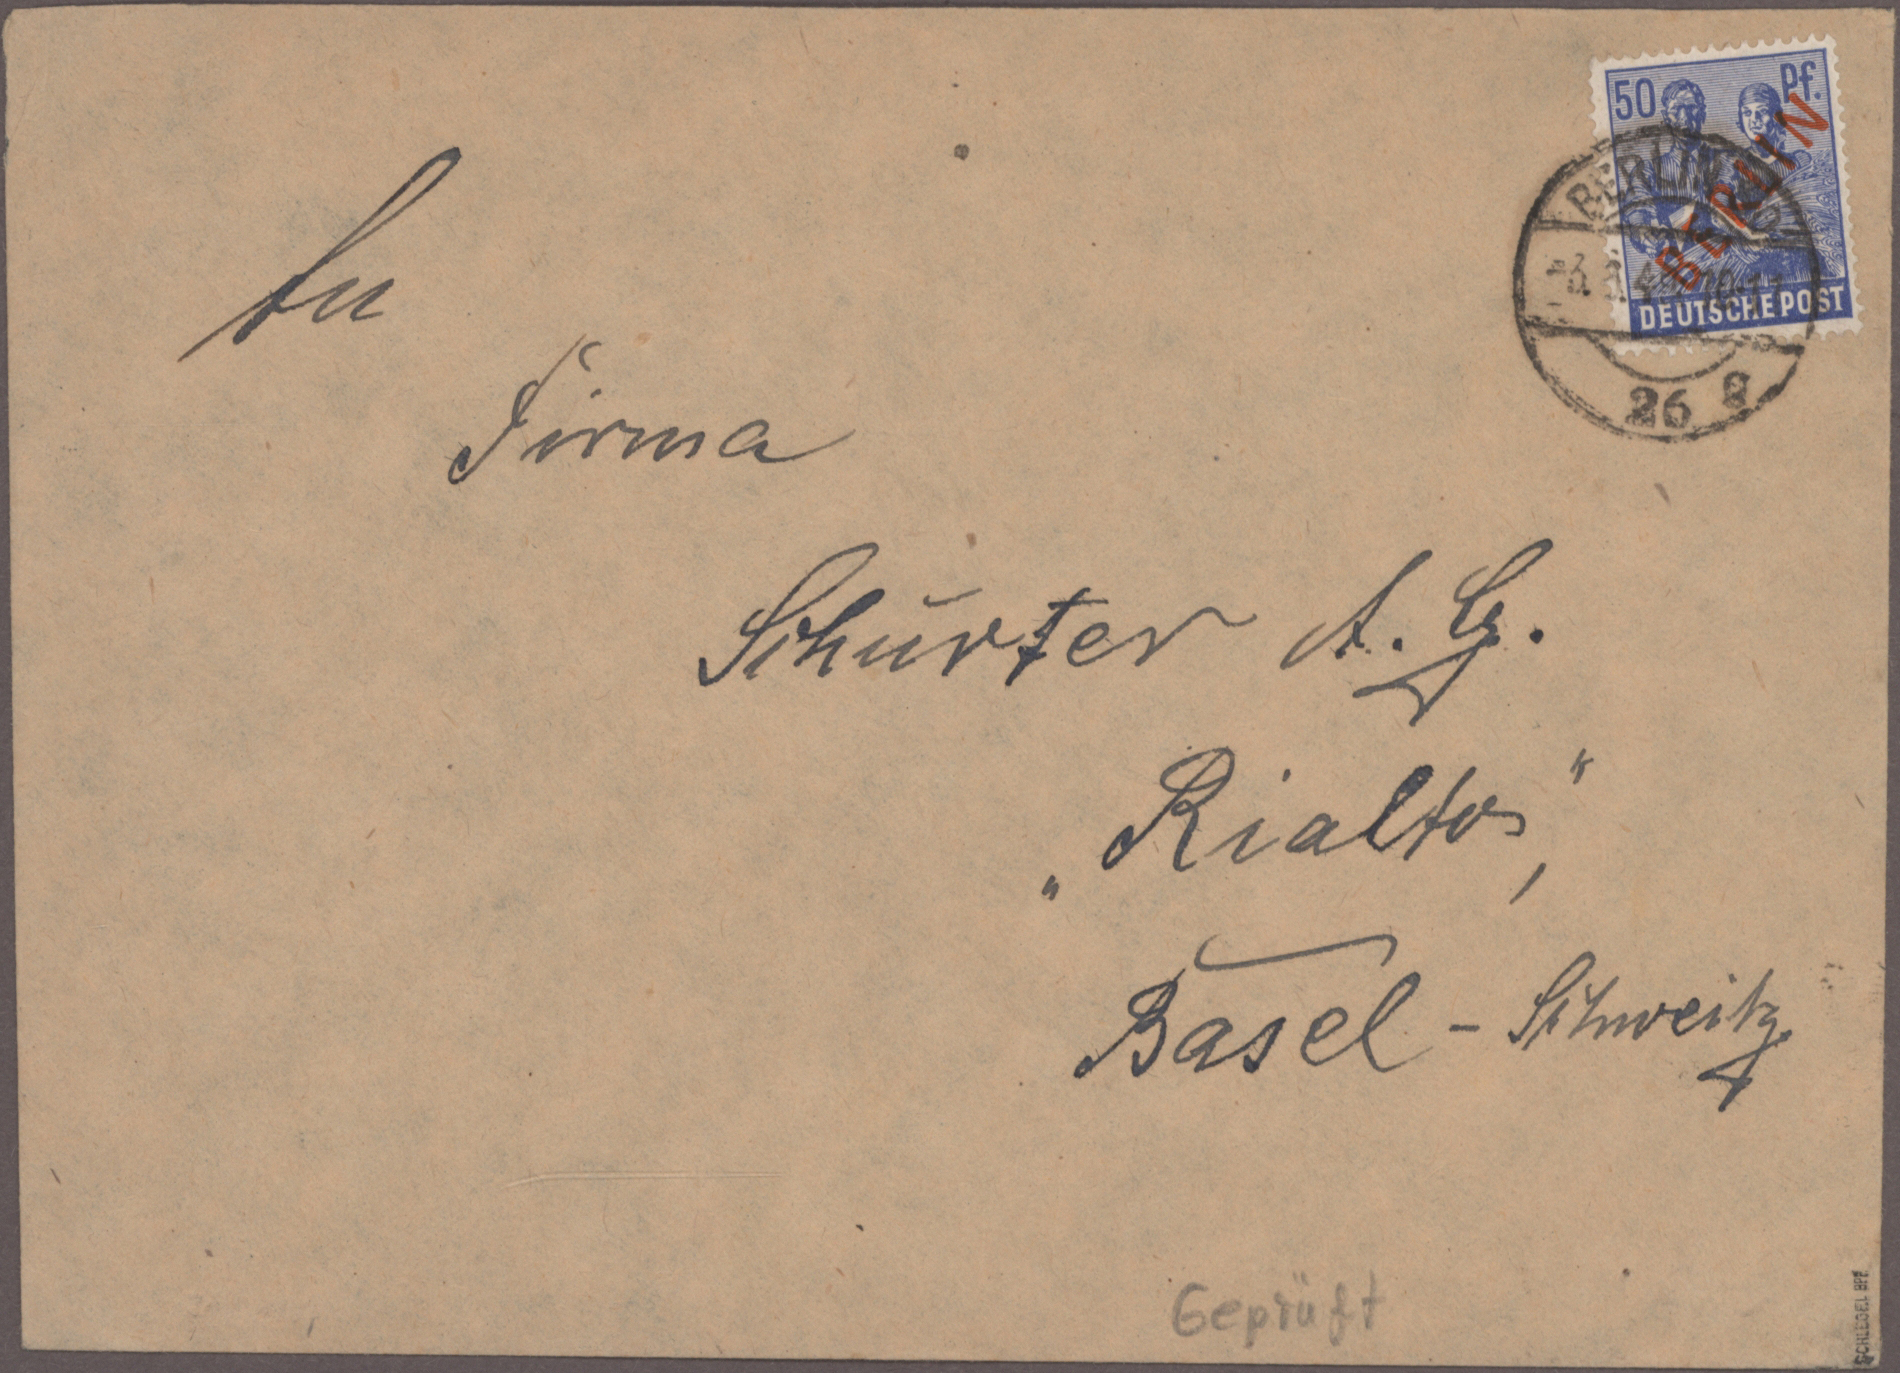 50 Pf.
BERLIN
DEUTSCHE POST
BERLIN
26
An
Firma
Schurter A. G.
„Rialto“,
Basel - Schweitz
Geprüft
SCHLEGEL BPP